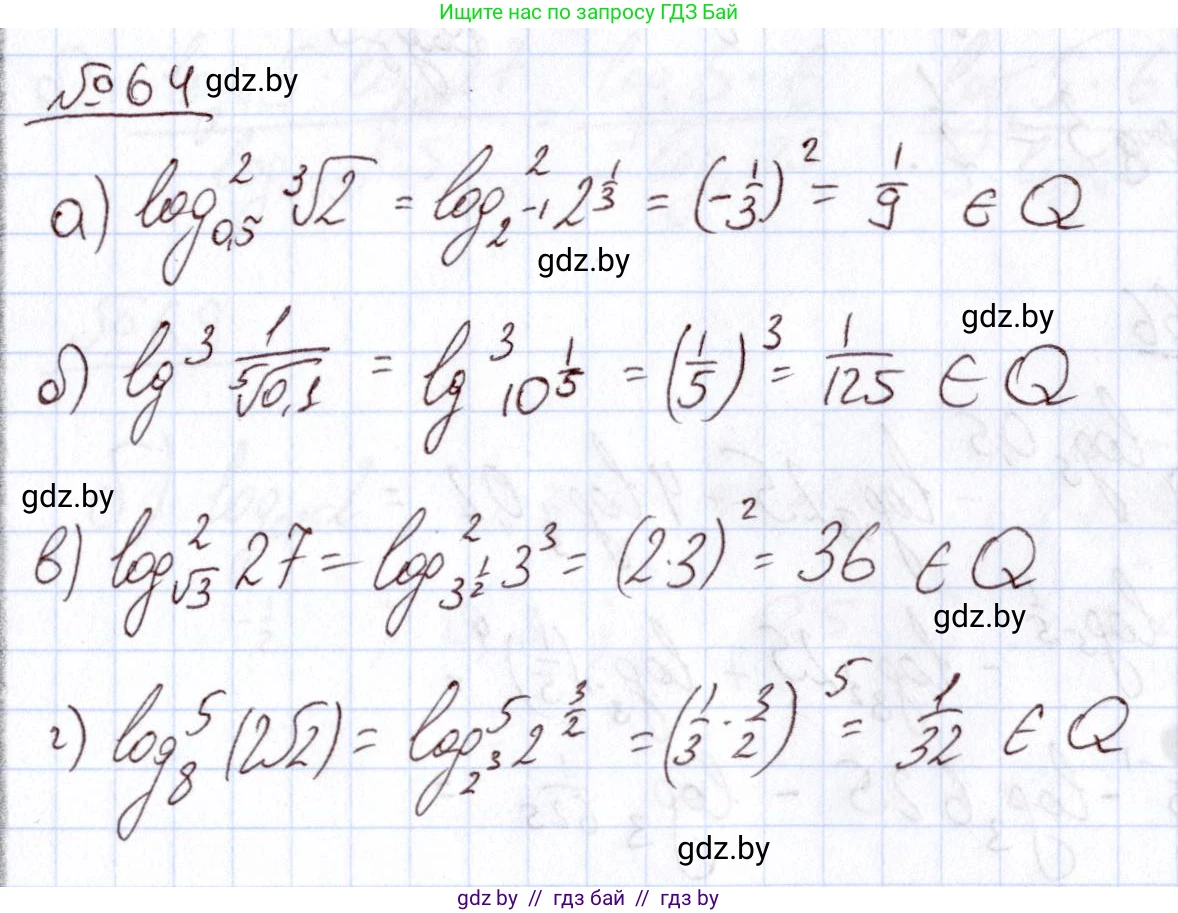 Ищите нас по запросу ГДЗ Бай
№ 64 gdz.by
а) log²₀,₅ ∛2 = log²_{2⁻¹} 2^{1/3} = (-1/3)² = 1/9 ∈ Q
gdz.by
gdz.by
б) lg³ 1/⁵√0,1 = lg³ 10^{1/5} = (1/5)³ = 1/125 ∈ Q
gdz.by
в) log²_{√3} 27 = log²_{3^{1/2}} 3³ = (2·3)² = 36 ∈ Q
gdz.by
г) log⁵₈ (2√2) = log⁵_{2³} 2^{3/2} = (1/3 · 3/2)⁵ = 1/32 ∈ Q
gdz.by
gdz by // гдз бай // гдз by